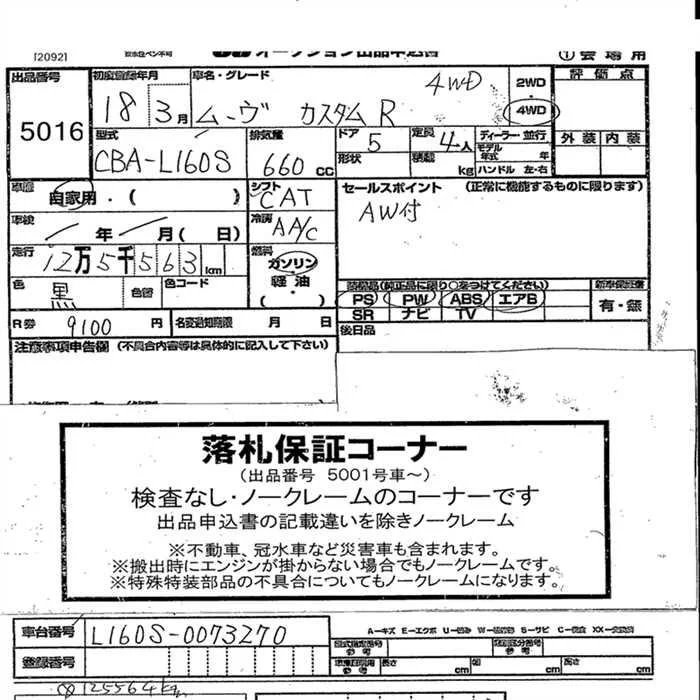 [2092] オークション出品申込書 ①会場用
出品番号 5016
初度登録年月 18 3月
車名・グレード ムーヴ カスタムR 4WD
2WD・4WD
評価点
外装 内装
型式 CBA-L160S
排気量 660cc
ドア 5
形状
定員 4人
積載 kg
ディーラー・並行
モデル年式 年
ハンドル 左・右
車歴 自家用・( )
シフト CAT
セールスポイント (正常に機能するものに限ります)
AW付
車検 年 月( 日)
冷房 AA/C
走行 12万5千563km
燃料 ガソリン 軽油 ( ・ )
色 黒 色替 色コード
装備品(純正品に限り○をつけてください)
PS PW ABS エアB
SR ナビ TV
新車保証書 有・無
R券 9100円
名変期限 月 日
後日品
注意事項申告欄 (不具合内容等は具体的に記入して下さい)
落札保証コーナー
(出品番号 5001号車~)
検査なし・ノークレームのコーナーです
出品申込書の記載違いを除きノークレーム
※不動車、冠水車など災害車も含まれます。
※搬出時にエンジンが掛からない場合でもノークレームです。
※特殊特装部品の不具合についてもノークレームになります。
車台番号 L160S-0073270
A-キズ E-エクボ U-凹み W-補修跡 S-サビ C-腐食 XX-交換済
登録番号
長さ cm 幅 cm 高さ cm
125564km